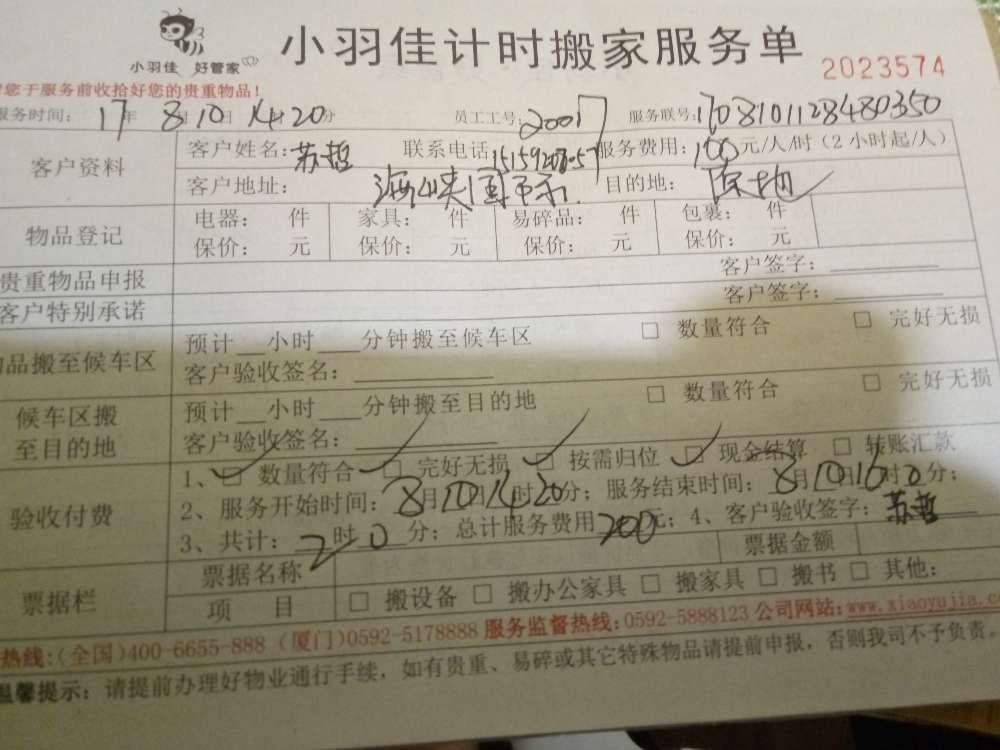 小羽佳 好管家
小羽佳计时搬家服务单
2023574
您于服务前收拾好您的贵重物品!
服务时间: 17年 8月10日 14时20分 员工工号: 20017 服务联号: 1708101128480350
客户资料 客户姓名: 苏哲 联系电话 服务费用: 100元/人/时(2小时起/人)
客户地址: 海峡国 目的地: 原地
物品登记 电器: 件 家具: 件 易碎品: 件 包裹: 件
保价: 元 保价: 元 保价: 元 保价: 元
贵重物品申报 客户签字:
客户特别承诺 客户签字:
品搬至候车区 预计__小时___分钟搬至候车区 □ 数量符合 □ 完好无损
客户验收签名:
候车区搬至目的地 预计__小时___分钟搬至目的地 □ 数量符合 □ 完好无损
客户验收签名:
验收付费 1、☑ 数量符合 ☑ 完好无损 ☑ 按需归位 ☑ 现金结算 □ 转账汇款
2、服务开始时间: 8月10日14时20分; 服务结束时间: 8月10日16时20分;
3、共计: 2时0分; 总计服务费用200元; 4、客户验收签字: 苏哲
票据栏 票据名称 票据金额
项 目 □ 搬设备 □ 搬办公家具 □ 搬家具 □ 搬书 □ 其他:
热线:(全国)400-6655-888 (厦门)0592-5178888 服务监督热线:0592-5888123 公司网站:www.xiaoyujia.c
温馨提示: 请提前办理好物业通行手续, 如有贵重、易碎或其它特殊物品请提前申报, 否则我司不予负责。